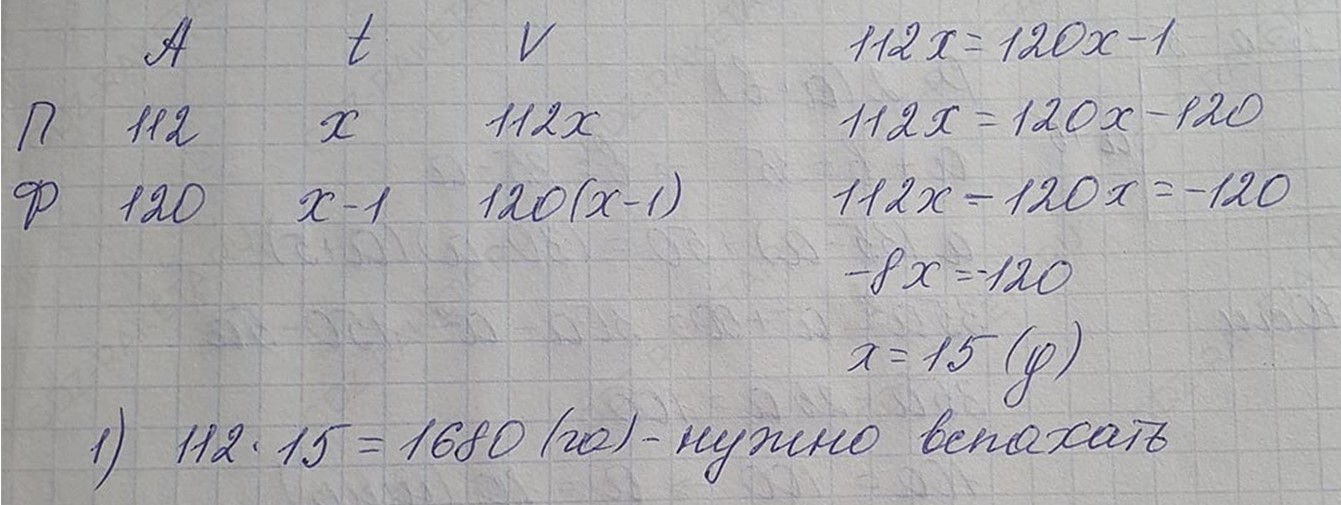 A t V
П 112 x 112x
Ф 120 x-1 120(x-1)
112x=120x-1
112x=120x-120
112x-120x=-120
-8x=-120
x=15 (д)
1) 112·15=1680 (га)- нужно вспахать